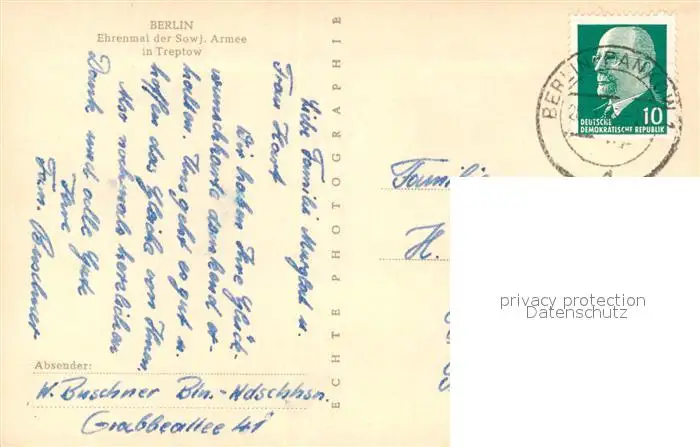 BERLIN
Ehrenmal der Sowj. Armee
in Treptow
Liebe Familie u.
Frau Harf
Wir haben Ihre Glück-
wunschkarte dankend er-
halten. Uns geht es gut u.
hoffen das Gleiche von Ihnen.
Also nochmals herzlichen
Dank und alles Gute
Ihre
Fam. Buschner
Absender:
W. Buschner Bln.-Wdschhsn.
Grabbeallee 41
ECHTE PHOTOGRAPHIE
BERLIN-PANKOW 1
10
DEUTSCHE
DEMOKRATISCHE REPUBLIK
Familie
H.
privacy protection
Datenschutz